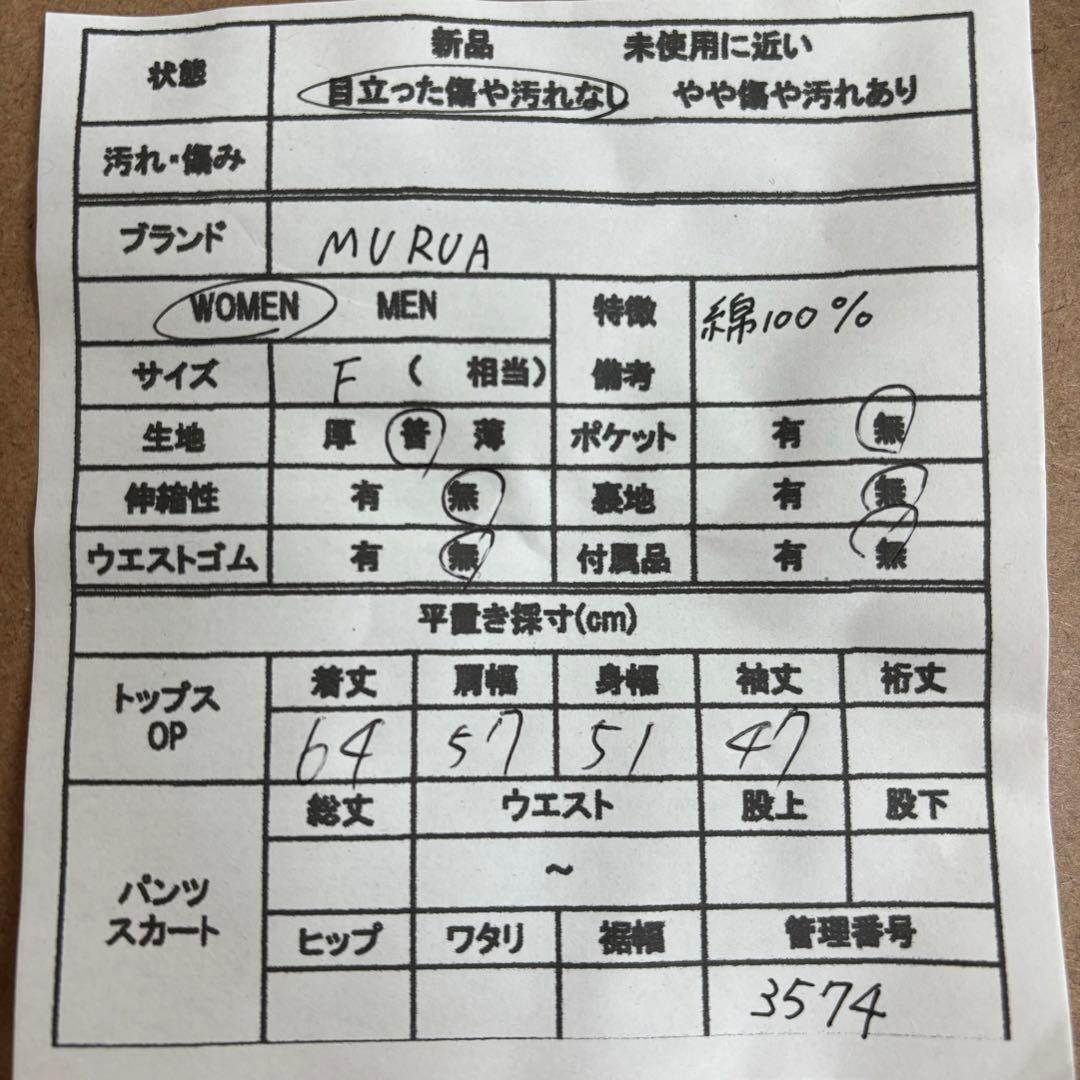 状態 新品 未使用に近い
目立った傷や汚れなし やや傷や汚れあり
汚れ・傷み
ブランド MURUA
WOMEN MEN 特徴 綿100%
サイズ F ( 相当) 備考
生地 厚 普 薄 ポケット 有 無
伸縮性 有 無 裏地 有 無
ウエストゴム 有 無 付属品 有 無
平置き採寸(cm)
トップス OP 着丈 肩幅 身幅 袖丈 裄丈
64 57 51 47
パンツ スカート 総丈 ウエスト 股上 股下
~
ヒップ ワタリ 裾幅 管理番号
3574